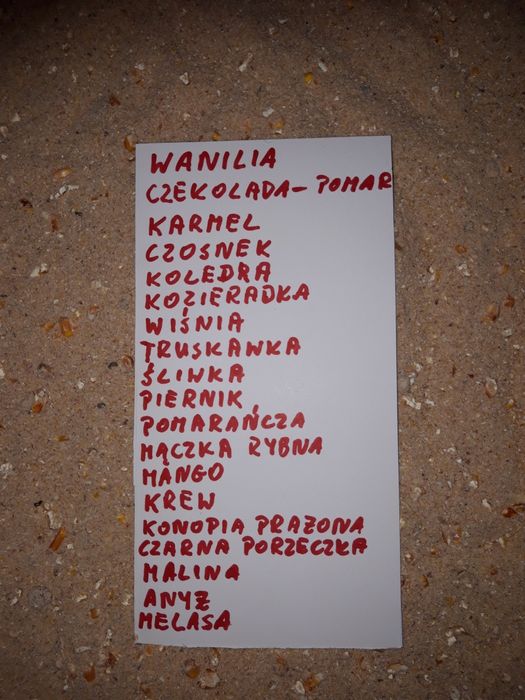 WANILIA
CZEKOLADA-POMAR
KARMEL
CZOSNEK
KOLEDRA
KOZIERADKA
WIŚNIA
TRUSKAWKA
ŚLIWKA
PIERNIK
POMARAŃCZA
MĄCZKA RYBNA
MANGO
KREW
KONOPIA PRAŻONA
CZARNA PORZECZKA
MALINA
ANYŻ
MELASA